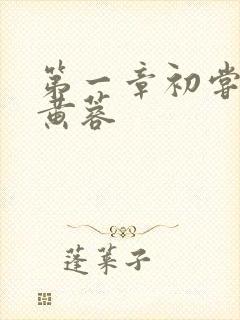 第一章初尝
黄蓉
蓬莱子